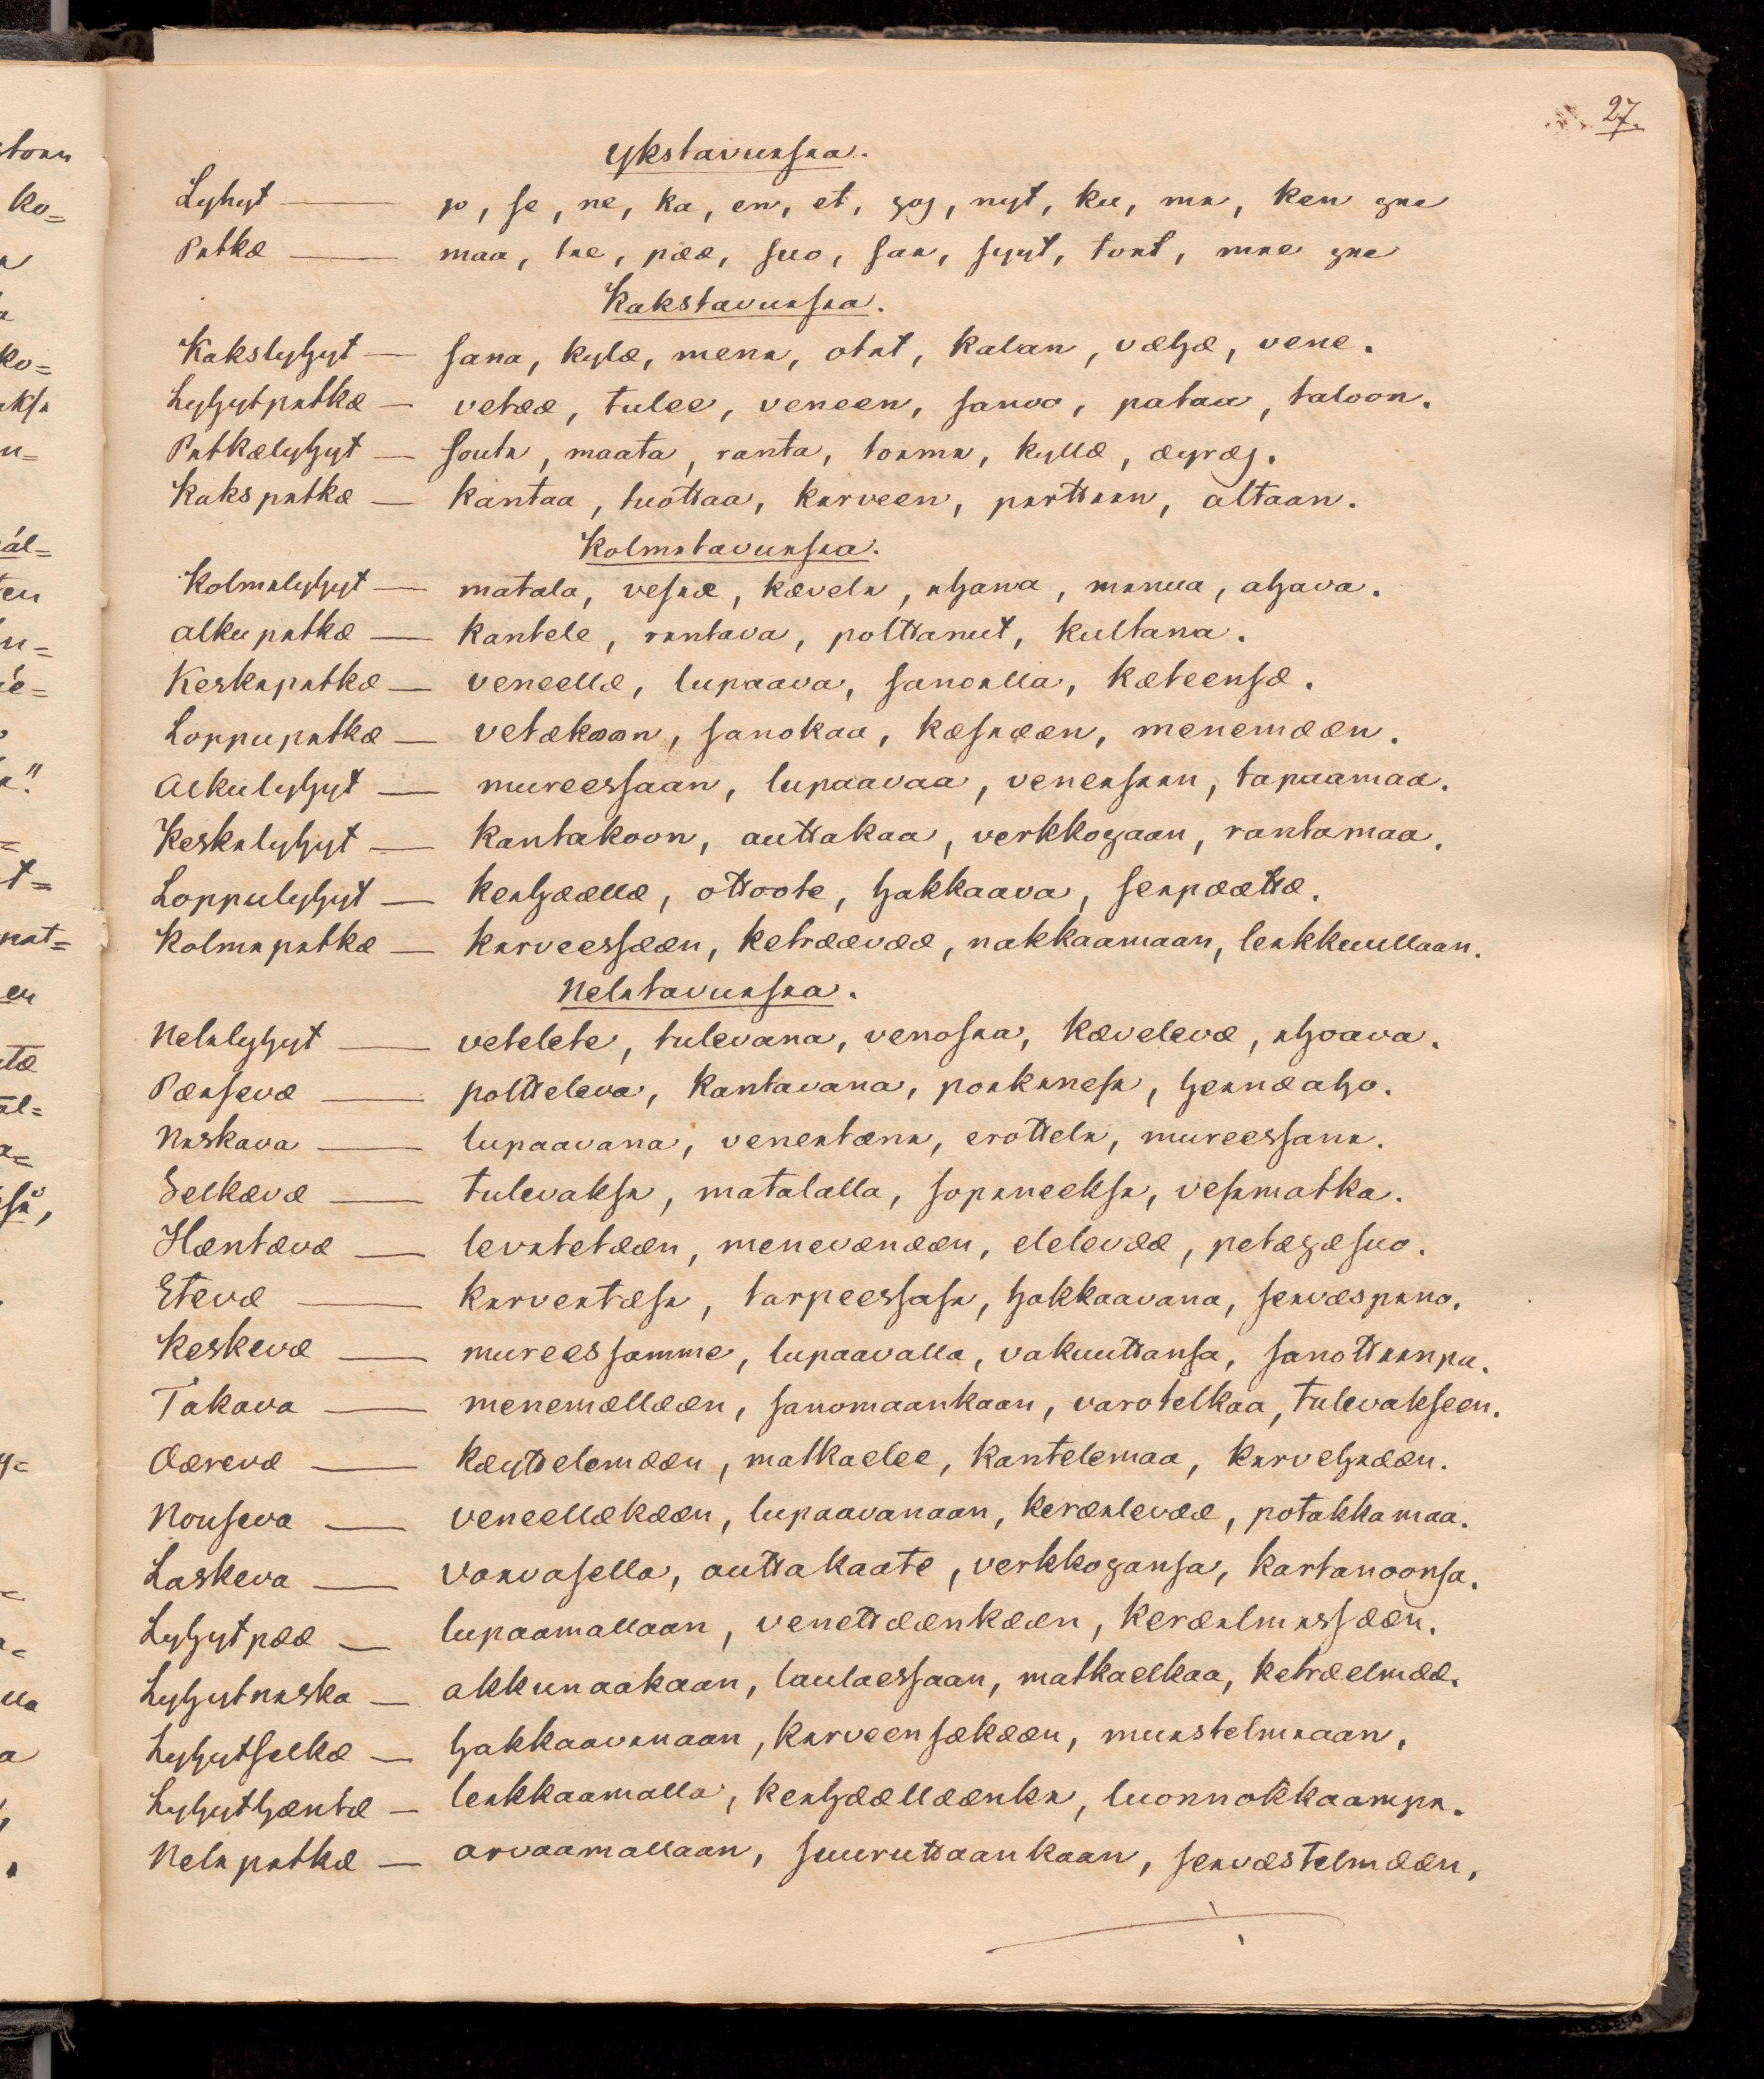 27.
Ykstavuisia.
Lyhyt — jo, se, ne, ka, en, et, joj, nyt, ku, mi, ken jne
Pitkæ — maa, tie, pææ, suo, sai, syyt, toit, mie jne
Kakstavuisia.
Kakslyhyt — sana, kylæ, meni, otit, kalan, væhæ, vene.
Lyhytpitkæ — vetææ, tulee, veneen, sanoo, pataa, taloon.
Pitkælyhyt — souti, maata, ranta, toimi, kyllæ, æyræj.
Kakspitkæ — kantaa, tuottaa, kirveen, pirttiin, altaan.
Kolmitavuisia.
Kolmilyhyt — matala, vesiæ, kæveli, ihana, minua, ahava.
Alkupitkæ — kantele, rintava, polttanut, kultana.
Keskipitkæ — veneellæ, lupaava, sanoilla, kæteensæ.
Loppupitkæ — vetækøøn, sanokaa, kæsiææn, menemææn.
Alkulyhyt — mureessaan, lupaavaa, veneisiin, tapaamaa.
Keskilyhyt — kantakoon, auttakaa, verkkojaan, rantamaa.
Loppulyhyt — keihæællæ, ottoote, hakkaava, seipæættæ.
Kolmipitkæ — kirveessææn, ketræævææ, nakkaamaan, leikkuullaan.
Nelitavuisia.
Nelilyhyt — vetelete, tulevana, venosia, kævelevæ, ihoava.
Pæisevæ — poltteleva, kantavana, poikinesi, heinæaho.
Niskava — lupaavana, veneitæni, erotteli, mureessani.
Selkævæ — tulevaksi, matalalla, sopineeksi, vesimatka.
Hæntævæ — levitetææn, menevænææn, elelevææ, petæjæsuo.
Etevæ — kirveitæsi, tarpeessasi, hakkaavana, seivæspino.
Keskevæ — mureessamme, lupaavalla, vakuuttansa, sanottiinpa.
Takava — menemællææn, sanomaankaan, varotelkaa, tulevakseen.
Æærevæ — kæyttelemææn, matkaelee, kantelemaa, kirvehiææn.
Nouseva — veneellækææn, lupaavanaan, keræilevææ, potakkamaa.
Laskeva — vaivasella, auttakaate, verkkojansa, kartanoonsa.
Lyhytpææ — lupaamallaan, venettæænkææn, keræilmissææn.
Lyhytniska — akkunaakaan, laulaessaan, matkaelkaa, ketræelmææ.
Lyhytselkæ — hakkaavinaan, kirveensækææn, muistelmiaan.
Lyhythæntæ — leikkaamalla, keihæællæænki, luonnokkaampi.
Nelipitkæ — arvaamallaan, suuruttaankaan, seivæstelmææn.